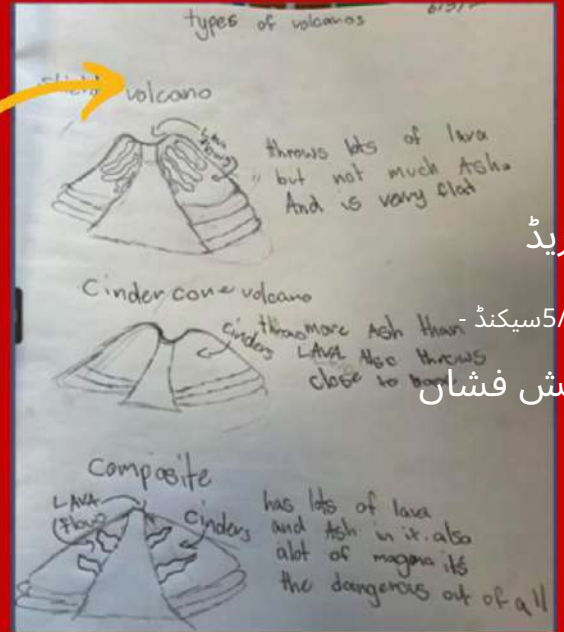 types of volcanos
Shield volcano
LAVA
(Flows)
throws lots of lava
but not much Ash.
And is verry flat
Cinder cone volcano
cinders
throws more Ash than
LAVA Also throws
close to
composite
LAVA
(Flow)
Cinders
has lots of lava
and Ash in it. also
alot of magma its
the dangerous out of all
یڈ
5سیکنڈ -
ش فشاں